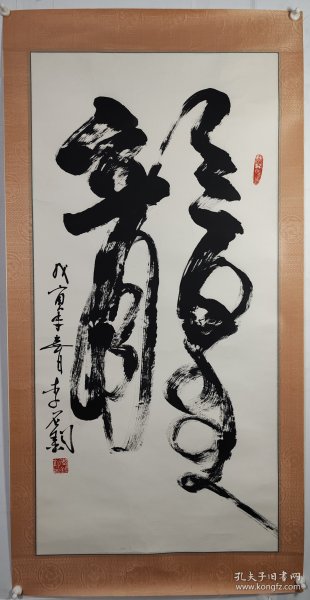 龍
戊寅年春月李
孔夫子旧书网
www.kongfz.com